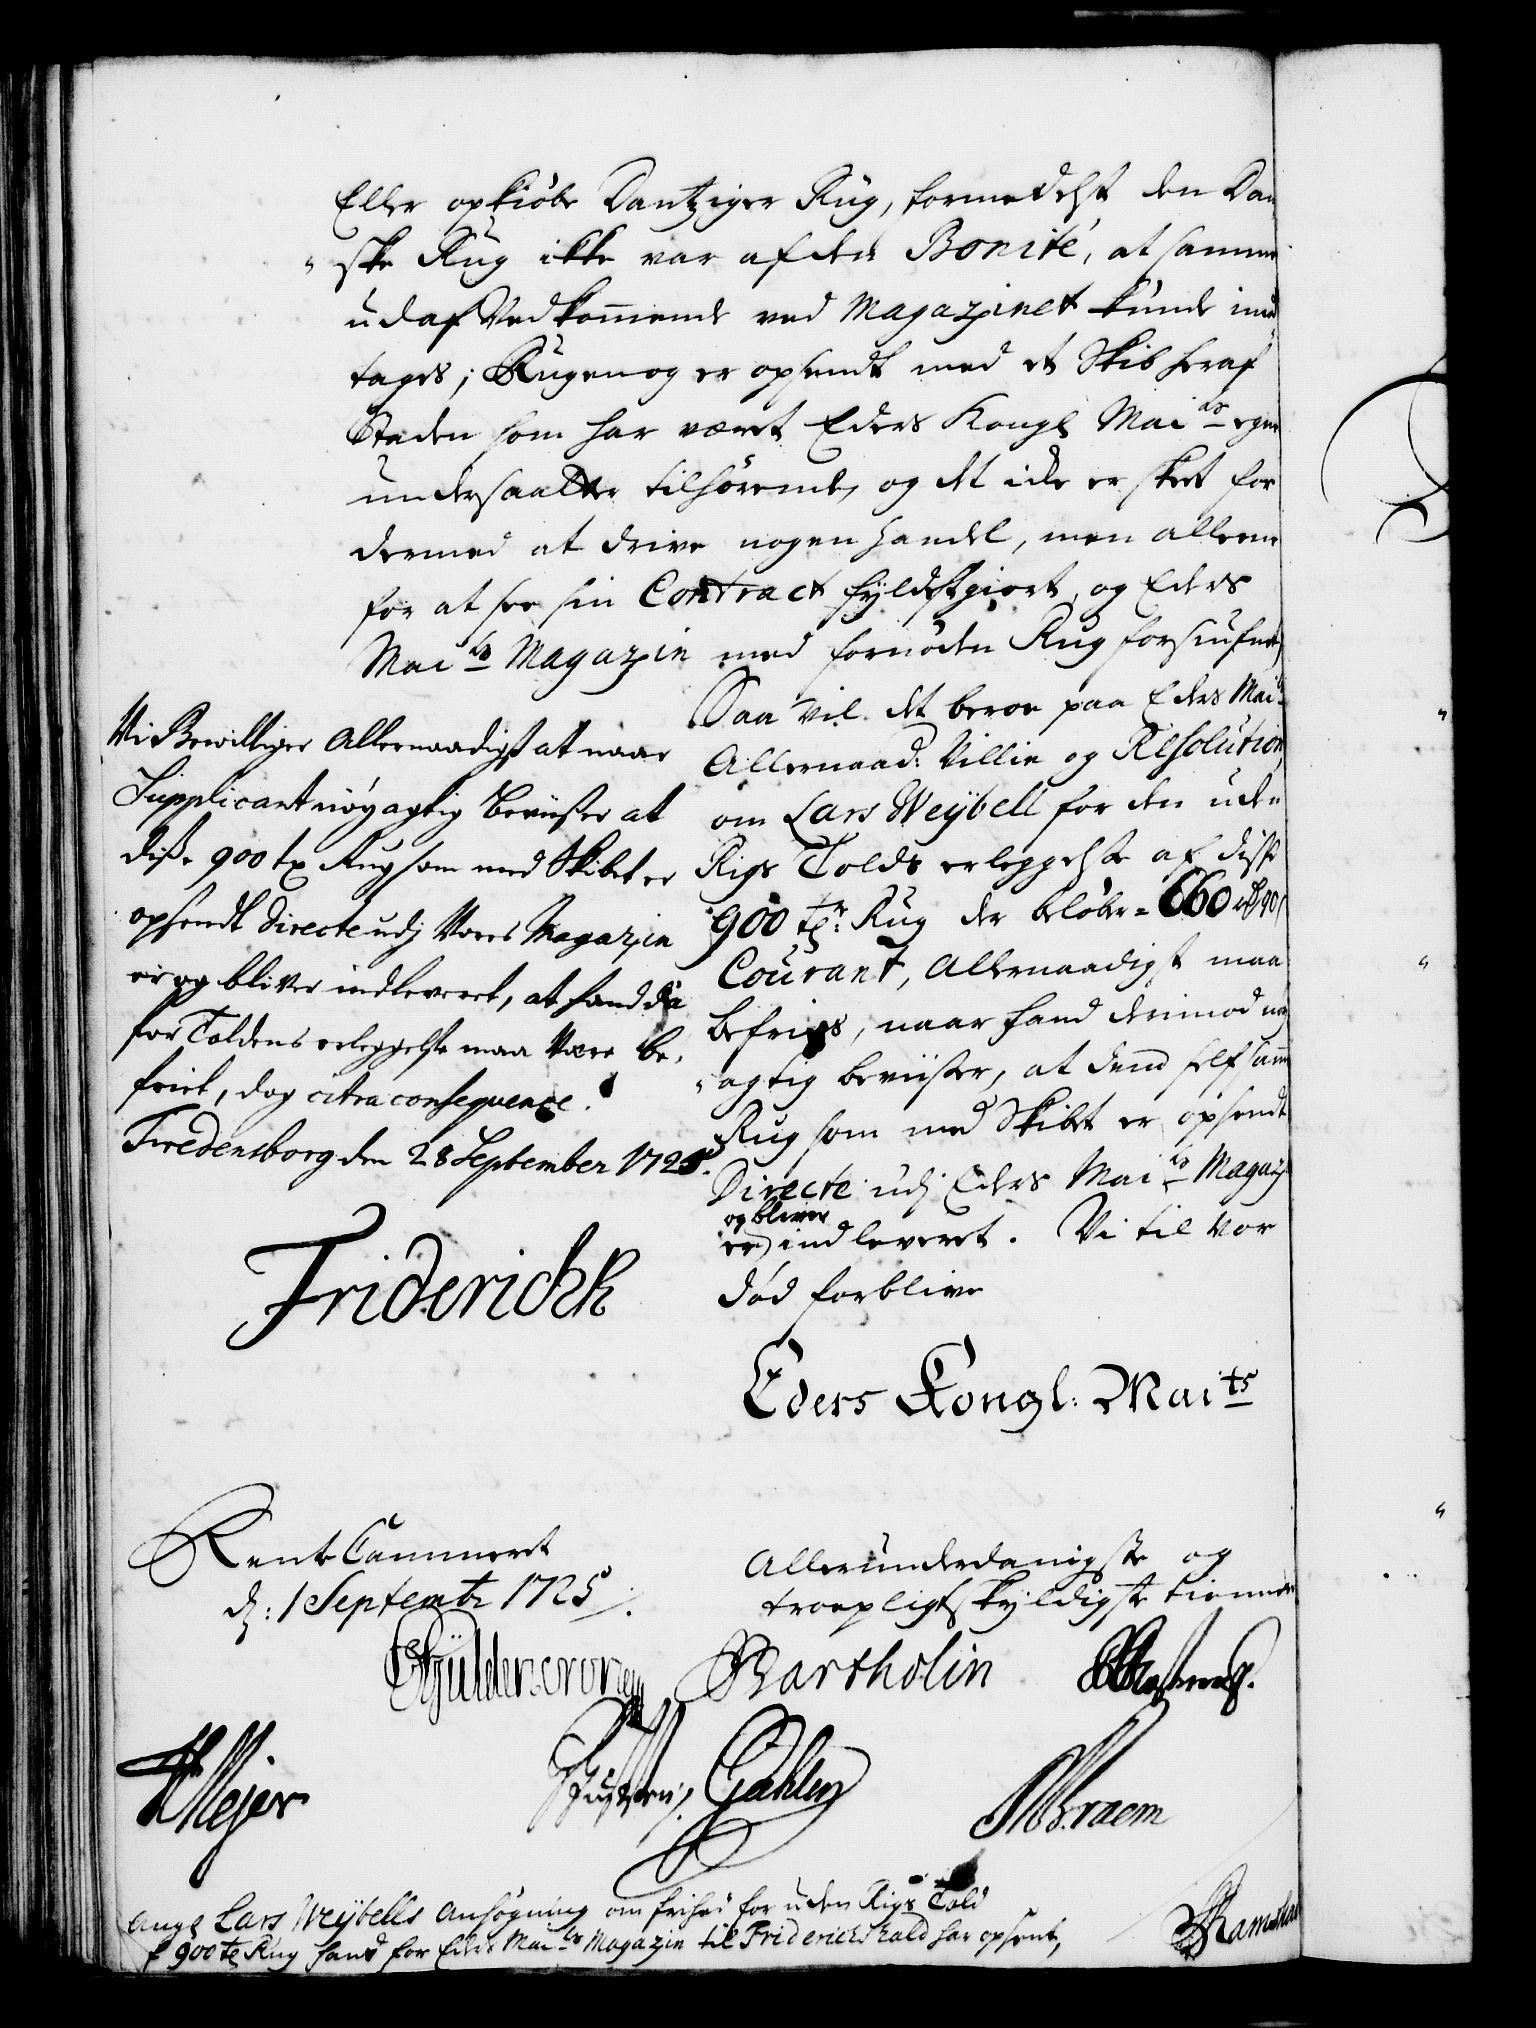 Eller opkiöbe Dantziger Rug, formedelst den Dan
"ske Rug ikke var af den Bonité, at samme
udaf Vedkommende ved Magazinet kunde imod
tages; Rugen og er opsendt med et Skib her af
Staden som har været Eders Kongl Maits egne
undersaatter tilhörende, og det icke er skeet for
dermed at drive nogen handel, men alleene
for at see sin Contract fyldestgiort, og Eders
Maits Magazin med fornöden Rug forsiufnet,
Saa vil det beroe paa Eders Maits
Allernaad: Villie og Resolution,
om Lars Weÿbell for den uden
Rigs Tolds erleggelse af disse
900 tr: Rug der belöber = 660 rd 90 s
Courant, Allernaadigst maa
befries, naar hand derimod nöy
"agtig beviiser, at dend self samme
Rug som med Skibet er opsendt
Directe udj Eders Maits Magaz
og bliver
er indleveret. Vi til vor
död forblive
Eders Kongl: Maits
Vi Bewilliger Allernaadigst at naar
Supplicant nöyagtig beviiser at
diße 900 tr Rug som med Skibet er
opsendt directe udj Vores Magazin
er og bliver indleveret, at hand da
for Toldens erleggelse maa være be-
friet, dog citra consequence.
Fredensborg den 28 September 1725.
Friderickh
Rente Cammeret
d: 1 Septembr 1725.
Allerunderdanigste og
troepligtskyldigste tienere
Gÿldencrone Bartholin
Meÿer Gahler Braem
Ang Lars Weÿbells Ansögning om frihed for uden Rigs Told
f 900 tr Rug hand for Eders Maits Magazin til Friderichshald har opsent,
Ramshart